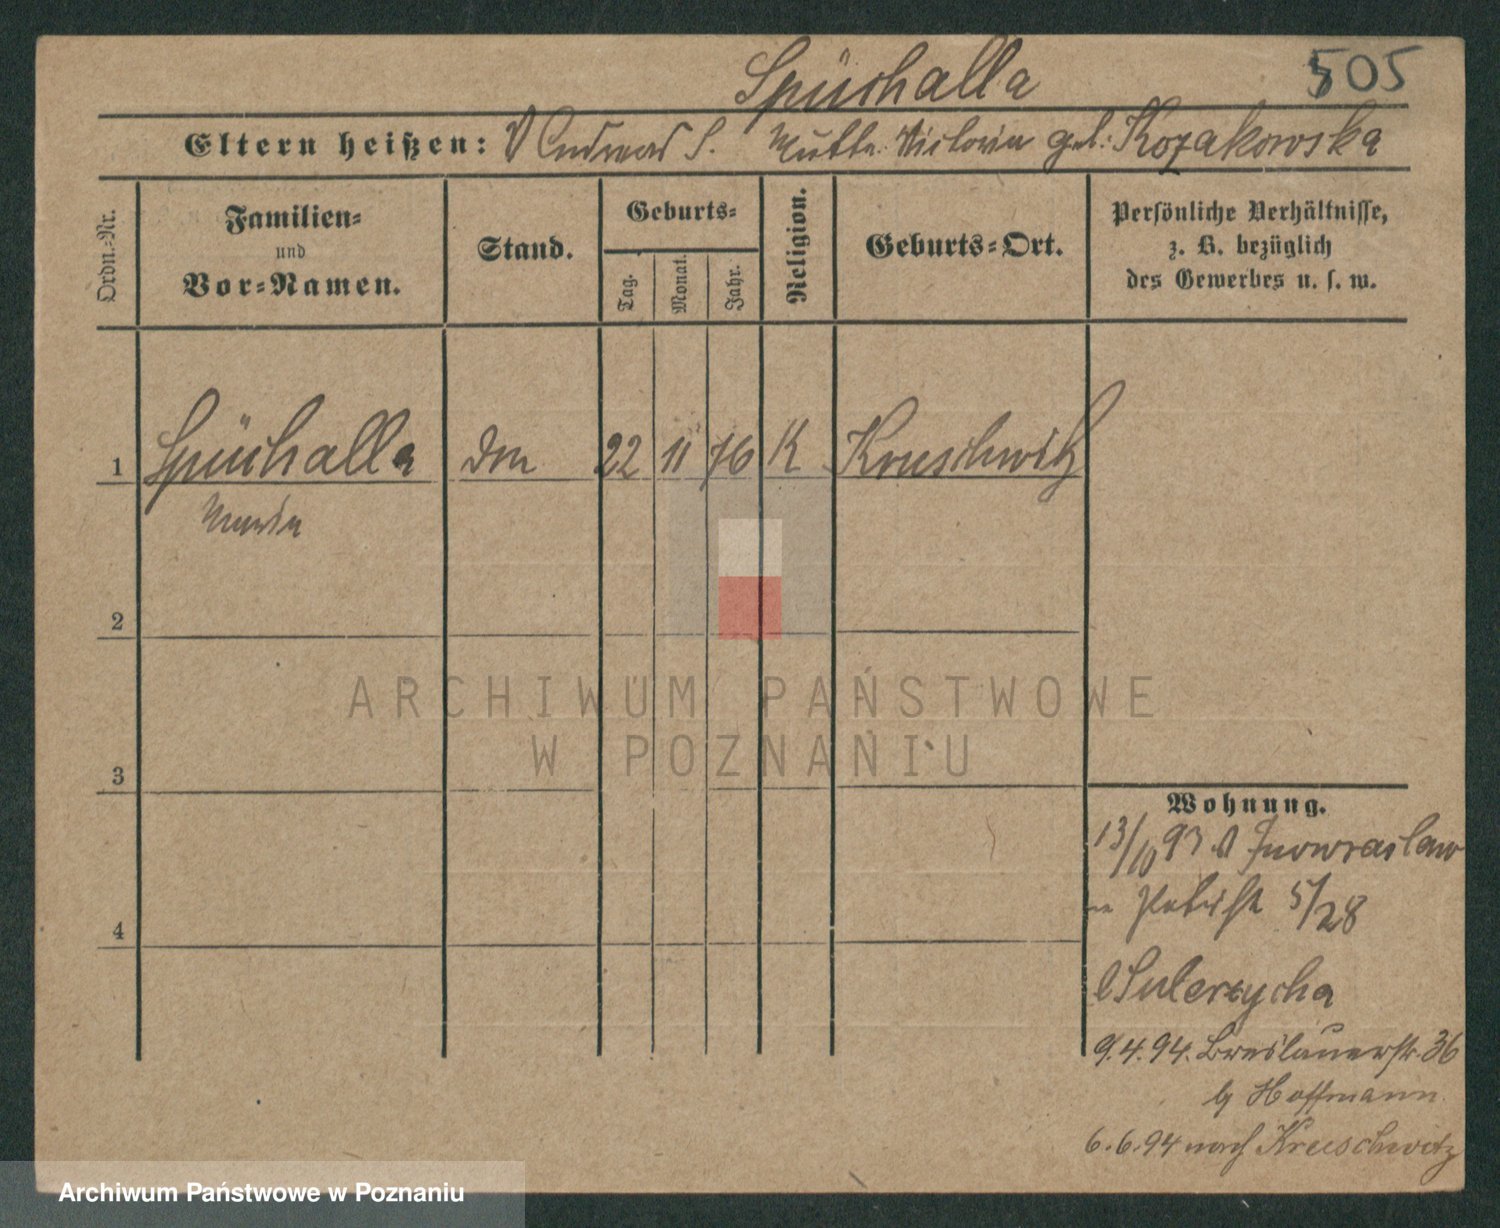 Spüchalla 505
Eltern heißen: V Andreas S. Mutter Victoria geb. Kozakowska
Ordn.-Nr.
Familien-
und
Vor-Namen.
Stand.
Geburts-
Tag.
Monat.
Jahr.
Religion.
Geburts-Ort.
Persönliche Verhältnisse,
z. B. bezüglich
des Gewerbes u. s. w.
1 Spüchalla 22 11 76 K Kruschwitz
Maria
2
3
4
ARCHIWUM PAŃSTWOWE
W POZNANIU
Wohnung.
13/10 93 Inowraclaw
5/28
Sulerzycka
9.4.94. Breslauerstr. 36
b/ Hoffmann
6.6.94 nach Kruschwitz
Archiwum Państwowe w Poznaniu